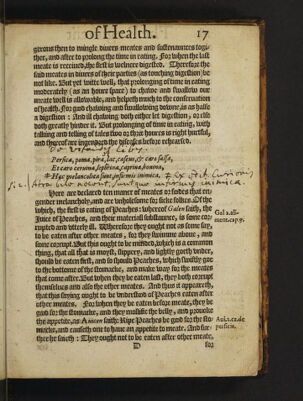 of Health. 17
gerous then to mingle divers meates and sustenaunces toge-
ther, and after to prolong the time in eating. For when the last
meate is received, the first is welnere digested. Therefore the
said meates in divers of their parties (as touching digestion) be
not like. But yet note well, that prolonging of time in eating
moderately (as an houre space) to chawe and swallow our
meate well is allowable, and helpeth much to the conservation
of health. For good chawing and swallowing downe, is as halfe
a digestion: And ill chawing, doth either let digestion, or els
doth greatly hinder it. But prolonging of time in eating, with
talking and telling of tales two or three houres is right hurtful,
and thereof are ingendred the diseases before rehearsed.
Persica, poma, pira, lac, caseus, & caro salsa,
Et caro cervina, leporina, caprina, bovina,
Hæc melancolica sunt, infirmis inimica.
Here are declared twelve maner of meates or foodes that en-
gender melancholy, and are unholesome for sicke folkes. Of the
which, the first is eating of Peaches: whereof Galen saith, the
Juice of Peaches, and their materiall substaunce, is soone cor-
rupted and utterly ill. Wherefore they ought not as some say,
to be eaten after other meates, for they swimme above, and
soone corrupt. But this ought to be minded, which is a common
thing, that all that is moyst, slippery, and lightly goeth under,
should be eaten first, and so should Peaches, which swiftly goe
to the bottome of the stomacke, and make way for the meates
that come after. But when they be eaten last, they both corrupt
themselves and also the other meates. And thus it appeareth,
that this saying ought to be understood of Peaches eaten after
other meates. For when they be eaten before meate, they be
god for the stomacke, and they mollifie the belly, and provoke
the appetite, as Avicen saith: Ripe Peaches be god for the sto-
macke, and causeth one to have an appetite to meate. And fur-
ther he saieth: They ought not to be eaten after other meate,
D for
Gal.2.ali-
ment.cap.9.
Avi.2.ca.de
persicis.